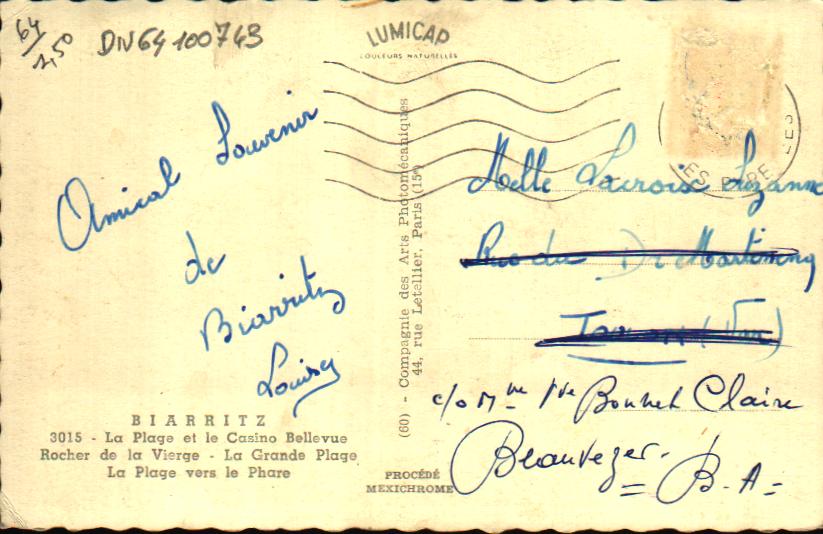 64/2,50
DN64 100743
LUMICAP
COULEURS NATURELLES
Amical Souvenir
de
Biarritz
(60) - Compagnie des Arts Photomécaniques
44, rue Letellier, Paris (15e)
Melle Lacroix Suzanne
Rue du Dr
(Var)
c/o Mme Vve Bonnet Claire
Beauvezer.
= B.A=
BIARRITZ
3015 - La Plage et le Casino Bellevue
Rocher de la Vierge - La Grande Plage
La Plage vers le Phare
PROCÉDÉ
MEXICHROME